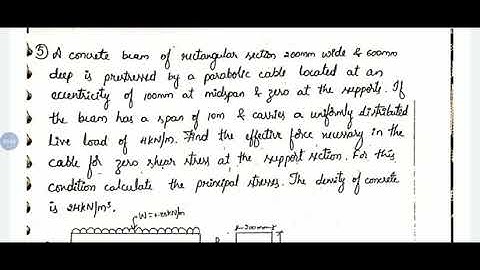 5) A concrete beam of rectangular section 200mm wide & 600mm
deep is prestressed by a parabolic cable located at an
eccentricity of 100mm at midspan & zero at the supports. If
the beam has a span of 10m & carries a uniformly distributed
Live load of 4kN/m. Find the effective force necessary in the
cable for zero shear stress at the support section. For this
condition calculate the principal stresses. The density of concrete
is 24kN/m³.
200mm